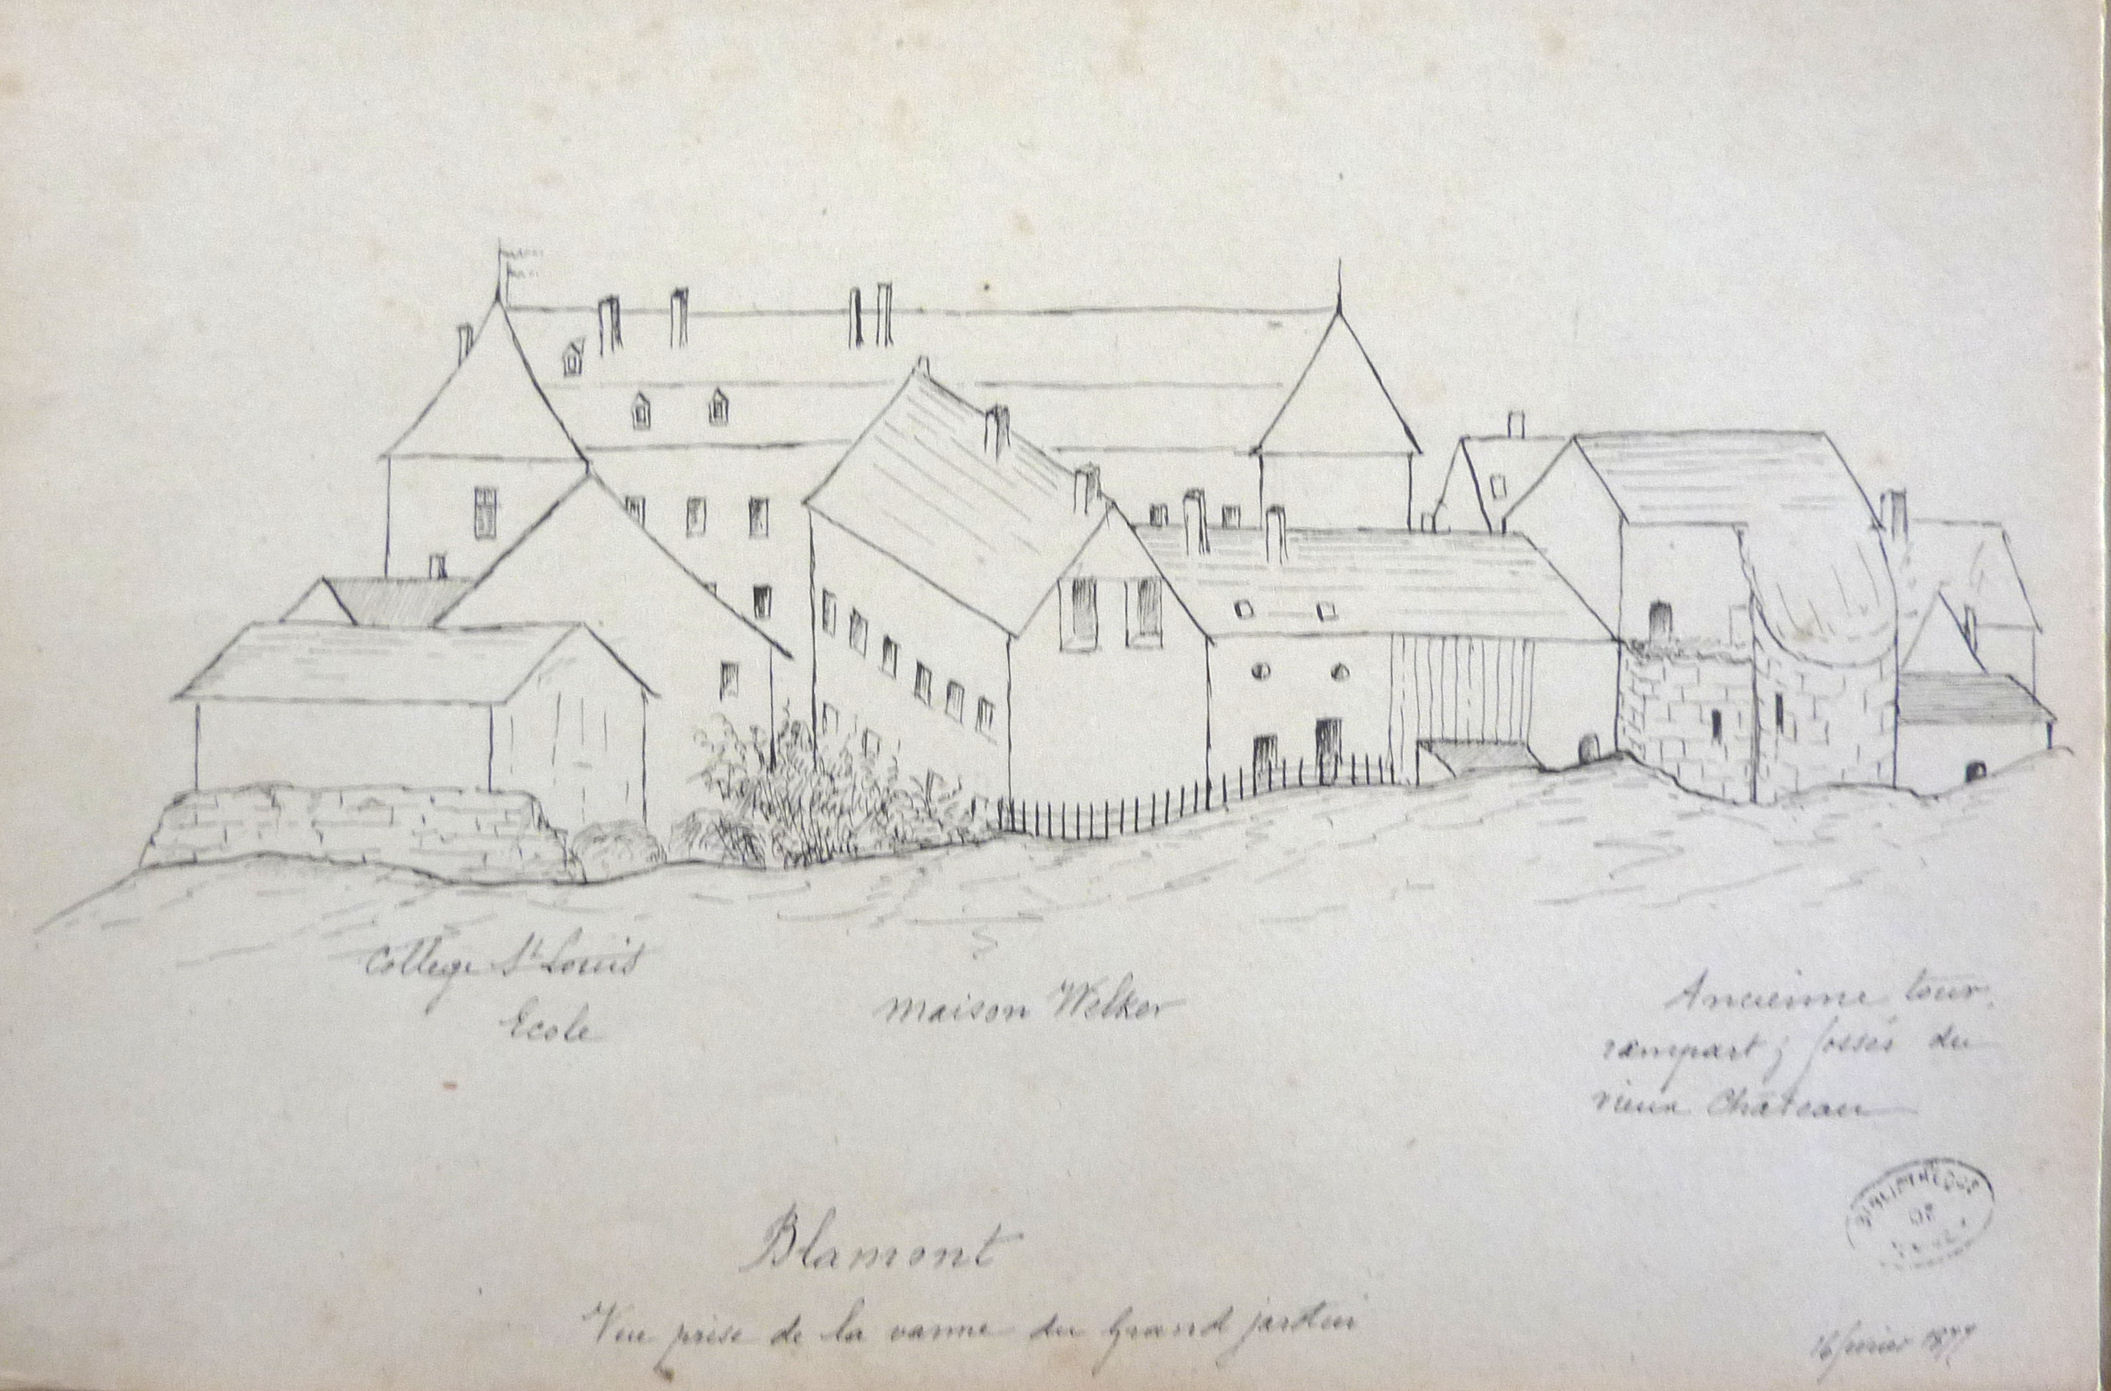 Collège St Louis
Ecole
Maison Welker
Ancienne tour,
rempart & fossés du
vieux Château
BIBLIOTHÈQUE
DE
Blamont
Vue prise de la vanne du Grand jardin
16 février 1877